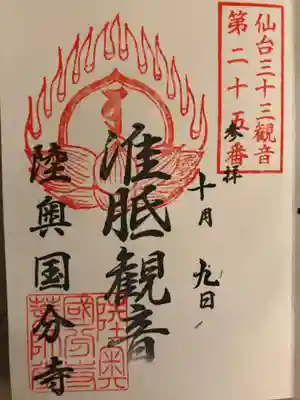 仙台三十三観音
第二十五番
参拝
十月九日
准胝観音
陸奥国分寺